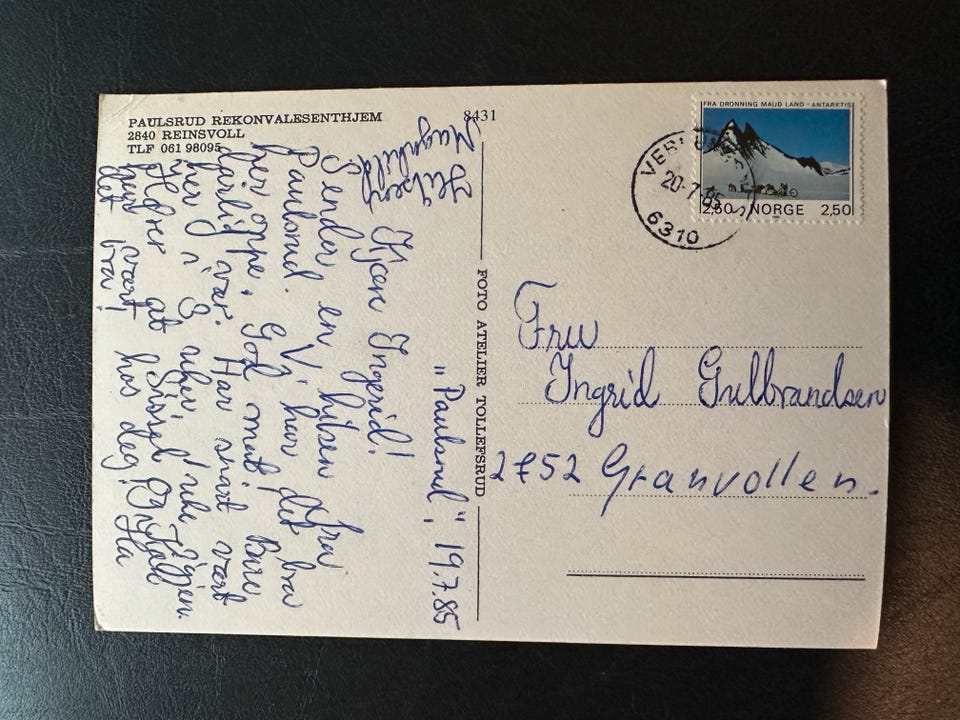 PAULSRUD REKONVALESENTHJEM
2840 REINSVOLL
TLF 061 98095
8431
"Paulsrud", 19.7.85
Kjære Ingrid!
Sender en hilsen fra
Paulsrud. Vi har det bra
her oppe. God mat! Bare
dårlig vær. Har snart vært
her i 3 uker, 1 uke igjen.
Hører at Sissel og Kjell
har vært hos deg! Ha
det bra!
Hilsen
Magnhild
FOTO ATELIER TOLLEFSRUD
FRA DRONNING MAUD LAND - ANTARKTIS
2,50 NORGE 2,50
20-7-85
6310
Fru
Ingrid Gulbrandsen
2752 Granvollen.